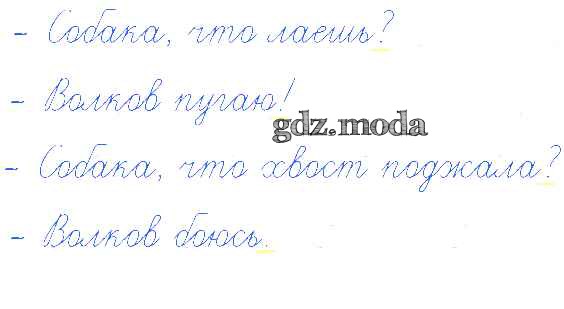 - Собака, что лаешь?
- Волков пугаю!
gdz.moda
- Собака, что хвост поджала?
- Волков боюсь.